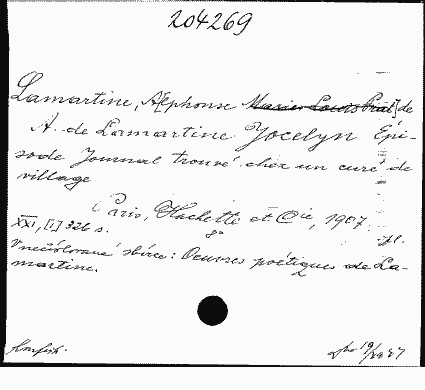 204269
Lamartine, A[lphonse Marie Louis Prat] de
A. de Lamartine Jocelyn Épi-
sode Journal trouvé chez un curé de
village
Paris, Hachette et Cie, 1907.
XXI, [1] 326 s. 8° pl.
V nečíslované sbírce: Oeuvres poétiques de La-
martine.